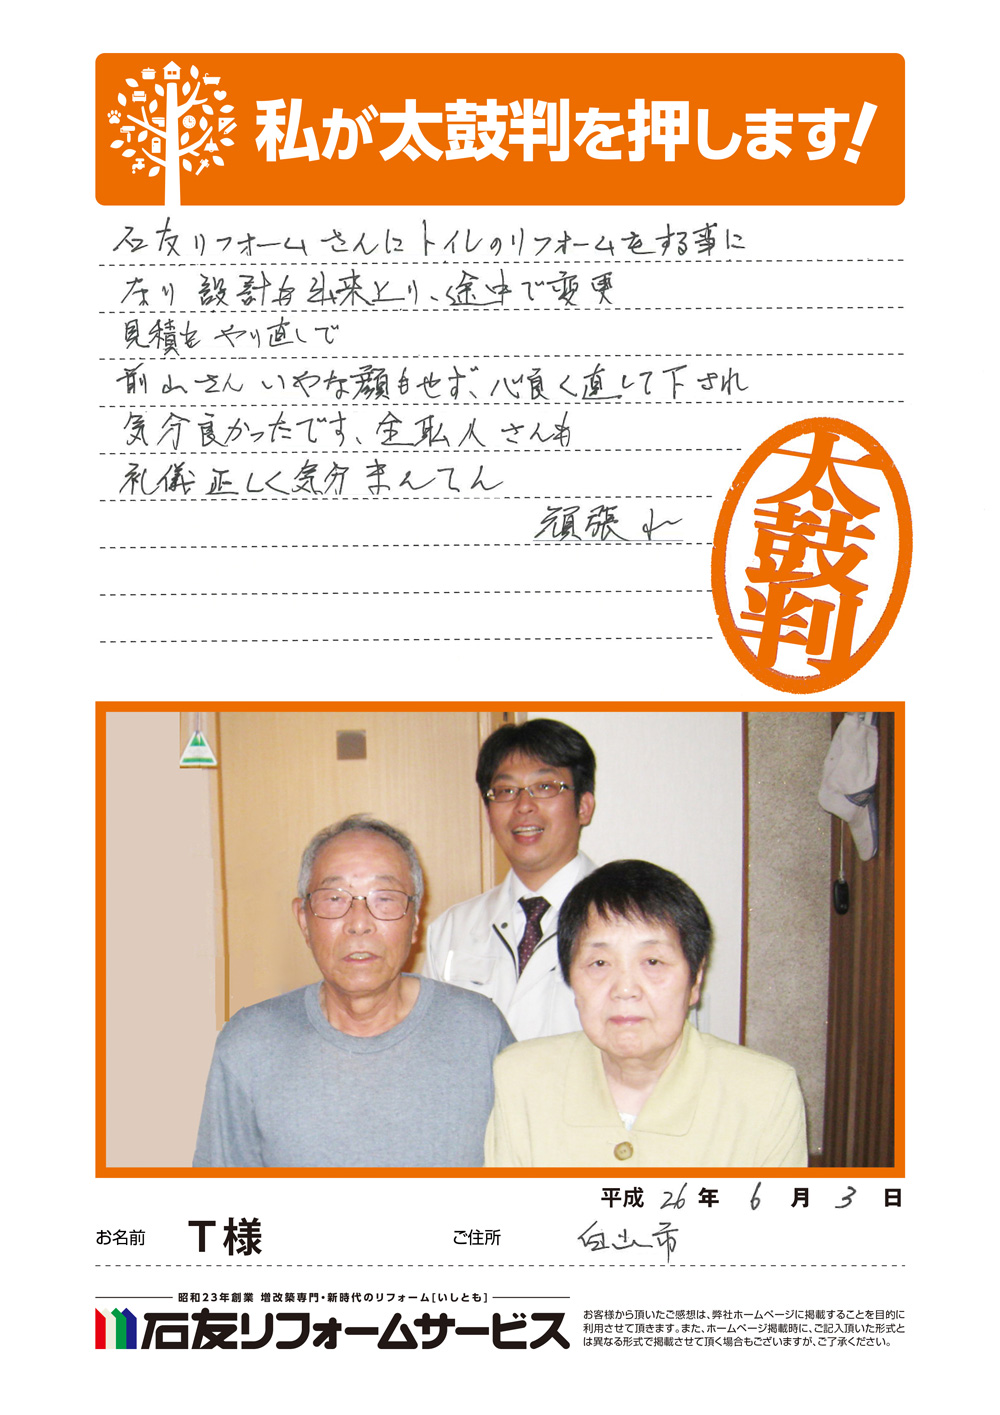 私が太鼓判を押します!
石友リフォームさんにトイレのリフォームをする事に
なり 設計も出来上り、途中で変更
見積もやり直しで
前山さん いやな顔もせず、心良く直して下され
気分良かったです、全職人さんも
礼儀正しく気分まんてん
頑張れ
太鼓判
平成 26 年 6 月 3 日
お名前 T様 ご住所 白山市
昭和23年創業 増改築専門・新時代のリフォーム[いしとも]
石友リフォームサービス
お客様から頂いたご感想は、弊社ホームページに掲載することを目的に
利用させて頂きます。また、ホームページ掲載時に、ご記入頂いた形式と
は異なる形式で掲載させて頂く場合もございますが、ご了承ください。